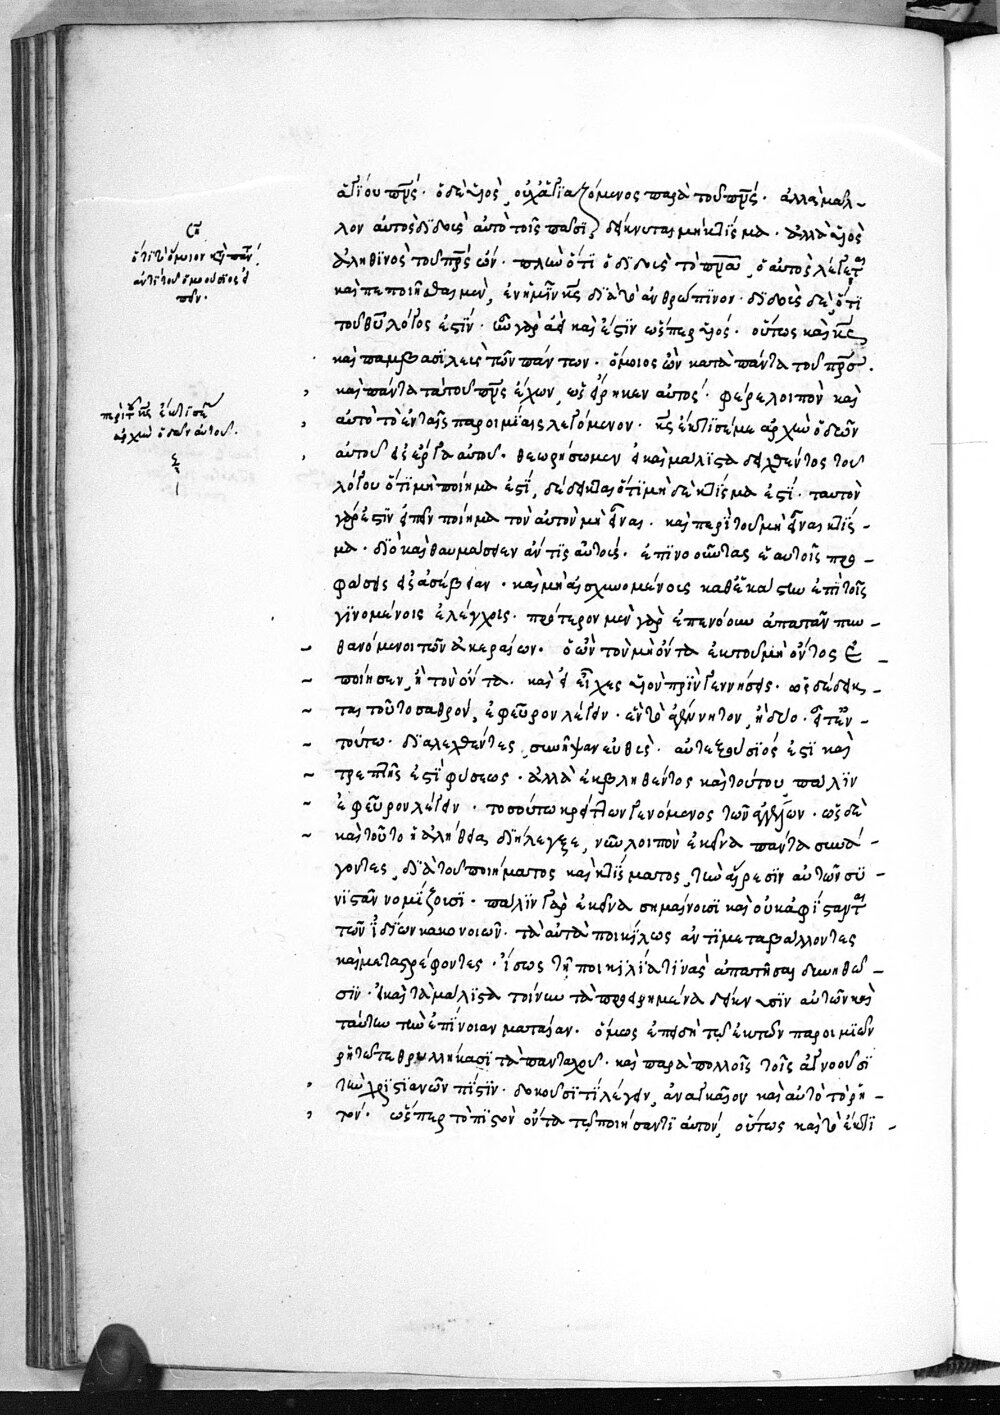 ἁγίου πρς. ὁ δὲ υἱὸς, οὐχ ἁγιαζόμενος παρὰ τοῦ πρς. ἀλλὰ μᾶλ-
λον αὐτὸς διδοὺς αὐτὸ τοῖς πᾶσι, δείκνυται μὴ κτίσμα. ἀλλὰ υἱὸς
ἀληθινὸς τοῦ πρς ὤν. πλὴν ὅτι ὁ διδοὺς τὸ πνα, ὁ αὐτὸς λέγεται
καὶ πεποιῆσθαι μὲν, ἐν ἡμῖν κς διὰ τὸ ἀνθρώπινον. διδοὺς δὲ, ὅτι
τοῦ θυ λόγος ἐστίν. ἦν γὰρ ἀεὶ καὶ ἔστιν ὥσπερ υἱὸς. οὕτως καὶ κς
καὶ παμβασιλεὺς τῶν πάντων. ὅμοιος ὢν κατὰ πάντα τοῦ πρς.
καὶ πάντα τὰ τοῦ πρς ἔχων, ὡς εἴρηκεν αὐτός. φέρε λοιπὸν καὶ
αὐτὸ τὸ ἐν ταῖς παροιμίαις λεγόμενον. κς ἔκτισέ με ἀρχὴν ὁδῶν
αὐτοῦ εἰς ἔργα αὐτοῦ. θεωρήσωμεν εἰ καὶ μάλιστα δειχθέντος τοῦ
λόγου ὅτι μὴ ποίημα ἐστὶ, δέδεικται ὅτι μὴ δὲ κτίσμα ἐστί. ταυτὸν
γάρ ἐστιν εἰπεῖν ποίημα τὸν αὐτὸν μὴ εἶναι. καὶ περὶ τοῦ μὴ εἶναι κτίσ-
μα. διὸ καὶ θαυμάσειεν ἄν τις αὐτούς. ἐπινοοῦντας ἑαυτοῖς προ-
φάσεις εἰς ἀσέβειαν. καὶ μὴ αἰσχυνομένους καθ' ἕκαστον ἐπὶ τοῖς
γινομένοις ἐλέγχοις. πρότερον μὲν γὰρ ἐπενόουν ἀπατᾶν πυν-
θανόμενοι τῶν ἀκεραίων. ὁ ὢν τὸν μὴ ὄντα ἐκ τοῦ μὴ ὄντος ἐ-
ποίησεν, ἢ τὸν ὄντα. καὶ εἰ εἶχες υἱὸν πρὶν γεννήσῃς. ὡς δέδεικ-
ται τοῦτο σαθρὸν, ἐφεῦρον λέγειν. ἓν τὸ ἀγένητον, ἢ δύο. εἶτ' ἐν
τούτῳ διελεχθέντες, συνῆψαν εὐθὺς. αὐτεξούσιός ἐστι καὶ
τρεπτῆς ἐστὶ φύσεως. ἀλλὰ ἐκβληθέντος καὶ τούτου, πάλιν
ἐφεῦρον λέγειν. τοσούτῳ κρείττων γενόμενος τῶν ἀγγέλων. ὡς δὲ
καὶ τοῦτο ἡ ἀλήθεια διήλεγξε, νῦν λοιπὸν ἐκεῖνα πάντα συνά-
γοντες, διὰ τοῦ ποιήματος καὶ κτίσματος, τὴν αἵρεσιν αὐτῶν συ-
νιστᾶν νομίζουσι. πάλιν γὰρ ἐκεῖνα σημαίνουσι καὶ οὐκ ἀφίστανται
τῶν ἰδίων κακονοιῶν. τὰ αὐτὰ ποικίλως ἀντιμεταβάλλοντες
καὶ μεταστρέφοντες. ἴσως τῇ ποικιλίᾳ τινὰς ἀπατῆσαι δυνηθῶ-
σιν. εἰ καὶ τὰ μάλιστα τοίνυν τὰ προειρημένα δείκνυσιν αὐτῶν καὶ
ταύτην τὴν ἐπίνοιαν ματαίαν. ὅμως ἐπειδὴ τῷ ἐκ τῶν παροιμιῶν
ῥητῷ τεθρυλλήκασι τὰ πανταχοῦ. καὶ παρὰ πολλοῖς τοῖς ἀγνοοῦσι
τὴν χριστιανῶν πίστιν. δοκοῦσι τὶ λέγειν, ἀναγκαῖον καὶ αὐτὸ τὸ ῥη-
τὸν. ὥσπερ τὸ πιστὸν ὄντα τῷ ποιήσαντι αὐτόν, οὕτως καὶ τὸ ἔκτι-
ὅτι τὸ ὅμοιον κατὰ πάντα
ἀντὶ τοῦ ὁμοούσιος εἶ
πεν.
περὶ τοῦ κς ἔκτισέ με
ἀρχὴν ὁδῶν αὐτοῦ.